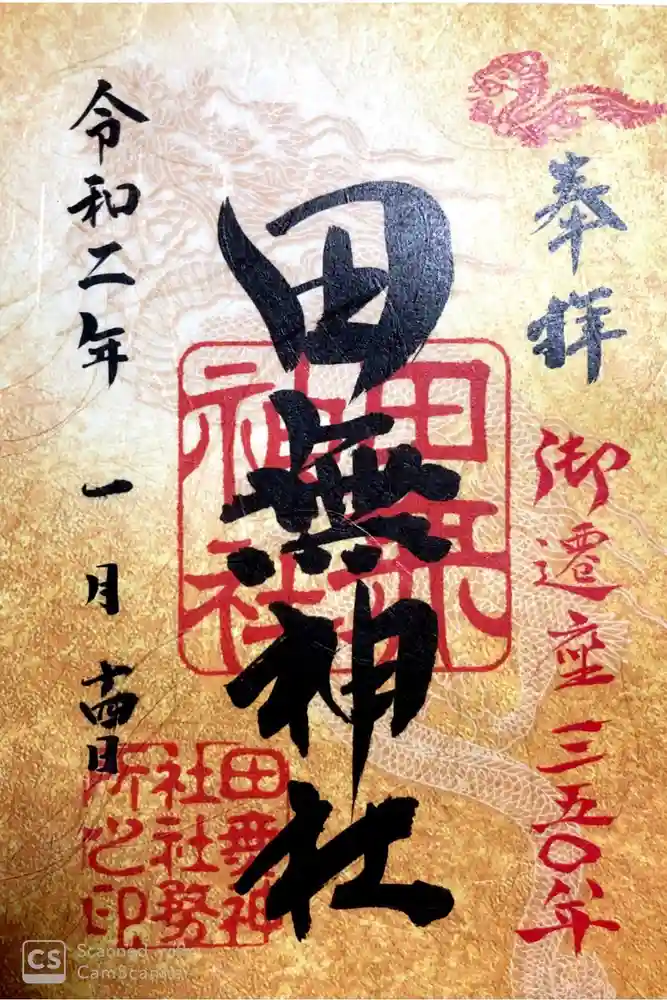 奉拝
御遷座三五〇年
田無神社
田無
神社
令和二年 一月 十四日
田無神
社社務
所之印
CS Scanned with
CamScanner